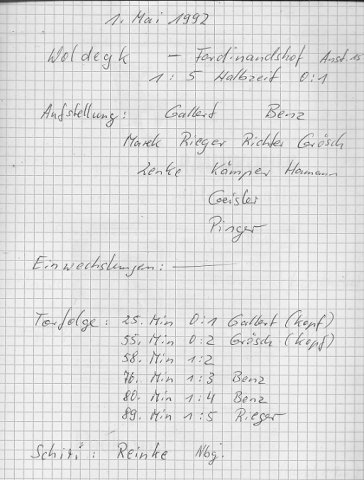 1. Mai 1992
Woldegk - Ferdinandshof Anst 15
1 : 5 Halbzeit 0:1
Aufstellung: Gallert Benz
Marek Rieger Richter Grösch
Zenke Kämper Hamann
Geisler
Pinger
Einwechslungen: —
Torfolge: 25. Min 0:1 Gallert (Kopf)
55. Min 0:2 Grösch (Kopf)
58. Min 1:2
76. Min 1:3 Benz
80. Min 1:4 Benz
89. Min 1:5 Rieger
Schiri: Reinke Nbg.